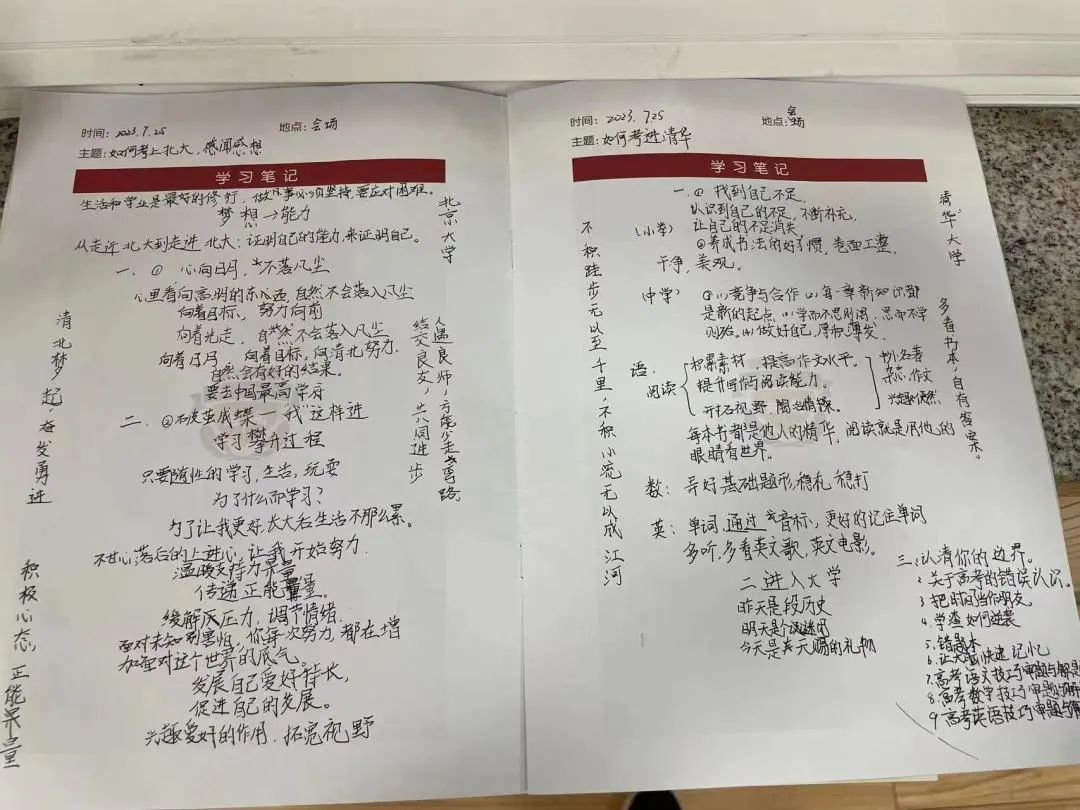 时间：2023.7.25 地点：会场
主题：如何考上北大，感闻感想
学习笔记
生活和学业是最好的修行，做凡事必须坚持，要应对困难。
梦想→能力
从走近北大到走进北大：证明自己的能力，来证明自己。
一、① 心向日月，不落凡尘
心里看向高明的东西，自然不会落入凡尘
向着目标，努力向前
向着光走，自然不会落入凡尘
向着日月，向着目标，向清北努力，
自然会有好的结果。
要去中国最高学府
二、②破茧成蝶—"我"这样进
学习攀升过程
只要随性的学习，生活，玩耍
为了什么而学习？
为了让我更好，长大后生活不那么累。
不甘心落后的上进心，让我开始努力.
温暖支持力量
传递正能量。
缓解压力，调节情绪.
面对未知别害怕，你每一次努力，都在增
加面对这个世界的底气。
发展自己爱好特长，
促进自己的发展。
兴趣爱好的作用.拓宽视野
北京大学
人遇良师，方能少走弯路
结交良友，共同进步
清北梦起，奋发勇进
积极心态，正能量
时间：2023.7.25 地点：会场
主题：如何考进清华
学习笔记
一.① 找到自己不足，
认识到自己的不足，不断补充，
(小学) 让自己的不足消失
②养成书法的好习惯，卷面工整，
干净，美观。
(中学) ①(1)竞争与合作(2)每一章新知识都
是新的起点(3)学而不思则罔，思而不学
则殆。(4)做好自己，厚积薄发。
语：
阅读
积累素材，提高作文水平。
提升写作与阅读能力。
开拓视野，陶冶情操。
抄名著
杂志，作文
兴趣使然
每本书都是他人的精华，阅读就是用他的
眼睛看世界。
数：弄好基础题形，稳扎稳打
英：单词，通过音标，更好的记住单词
多听，多看英文歌，英文电影。
二 进入大学
昨天是段历史
明天是个谜团
今天是天赐的礼物
三、认清你的边界。
2 关于高考的错误认识。
3 把时间当作朋友。
4. 学渣如何逆袭
5. 错题本
6. 让大脑快速记忆
7. 高考语文技巧审题与解题
8. 高考数学技巧审题与解
9. 高考英语技巧审题与
清华大学
多看书本，自有答案。
不积跬步无以至千里，不积小流无以成江河